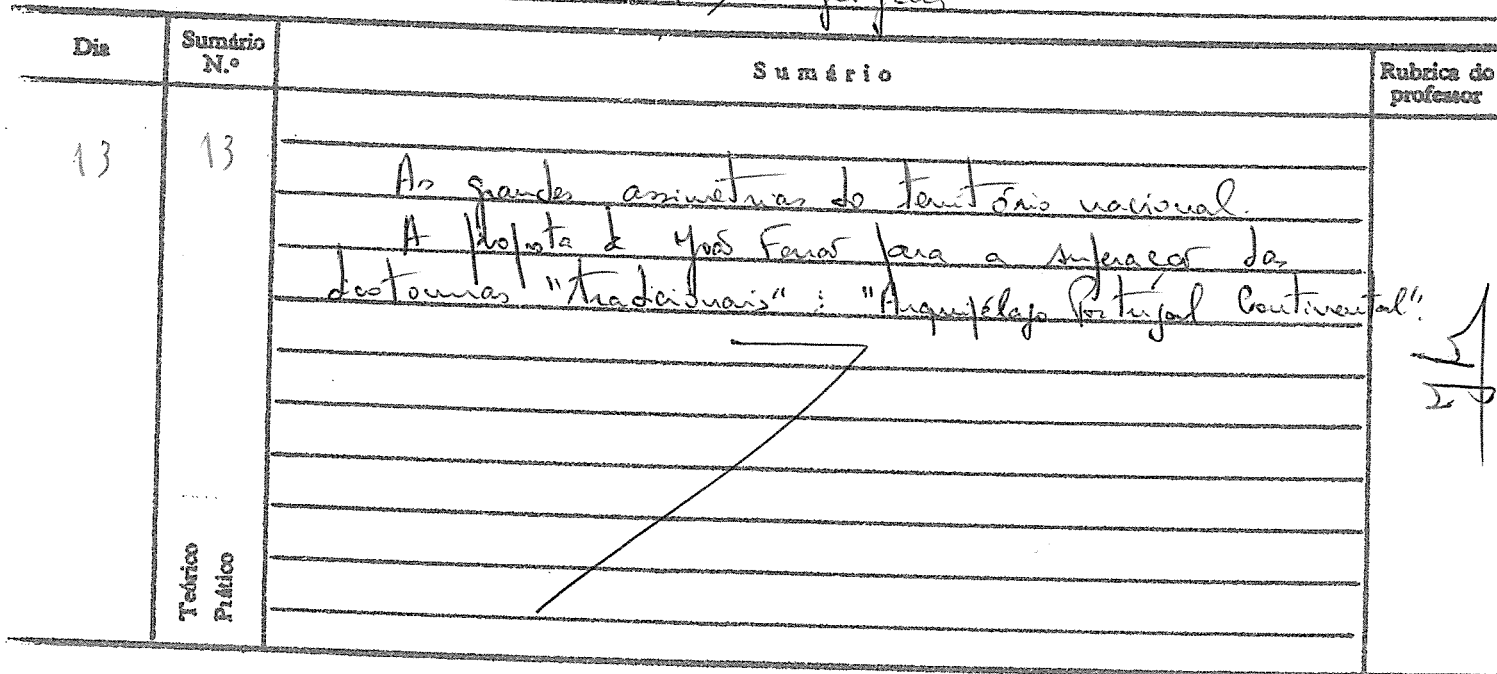 Dia
Sumário
N.º
Sumário
Rubrica do
professor
13
13
As grandes assimetrias do território nacional.
A proposta de João Ferrão para a superação das
dicotomias "tradicionais" : "Arquipélago Portugal Continental".
Teórico
Prático